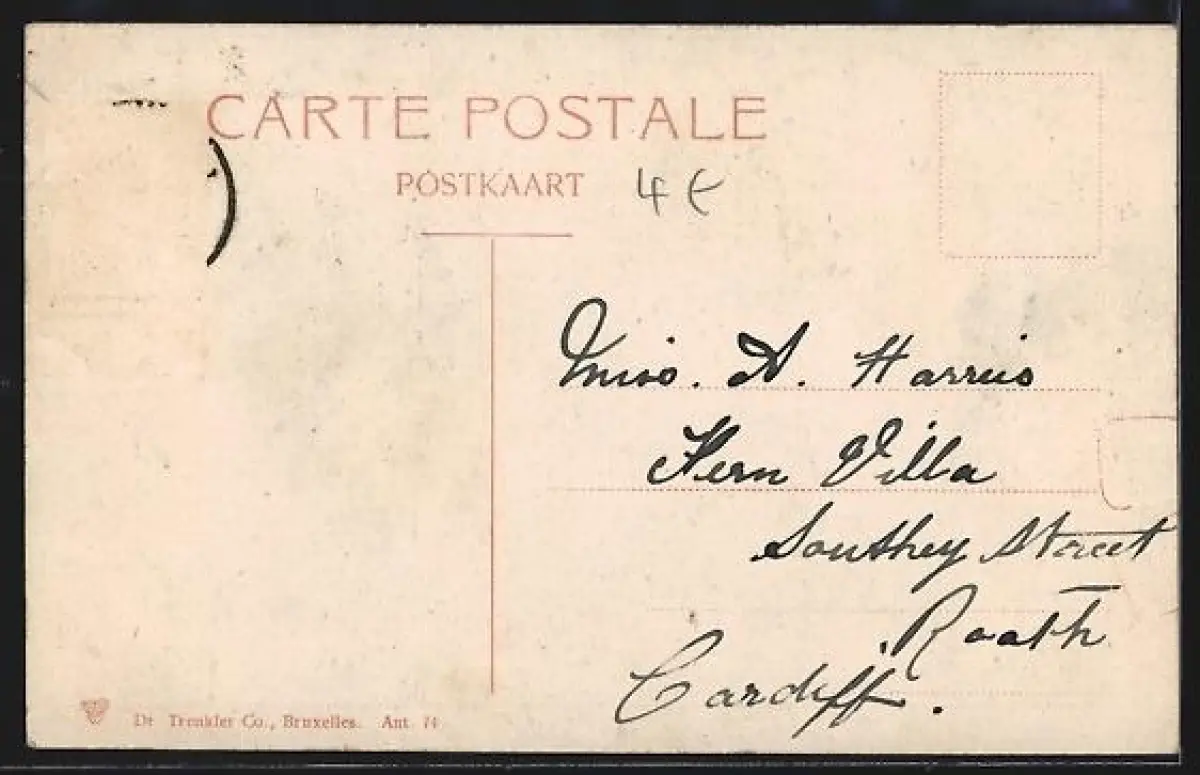 CARTE POSTALE
POSTKAART
4€
Miss. A. Harris
Fern Villa
Southey Street
Roath
Cardiff.
Dr Trenkler Co., Bruxelles. Ant. 74